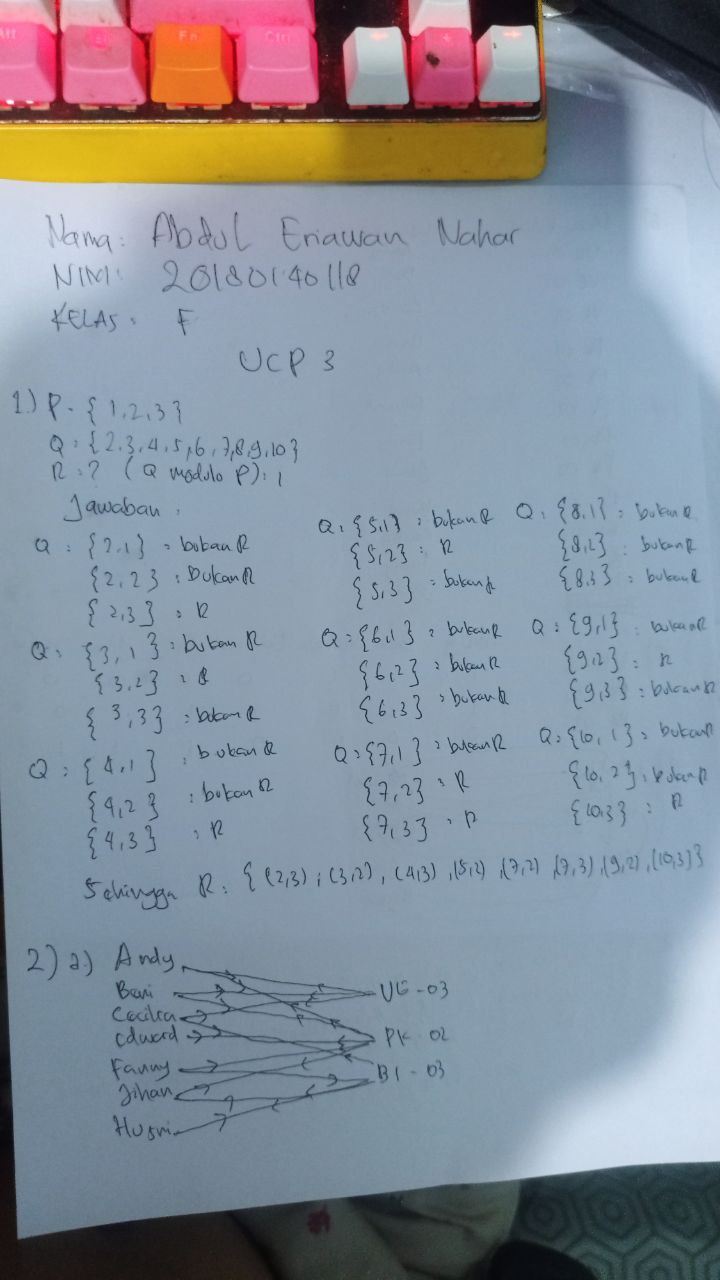 Alt
Fn
Ctrl
Nama: Abdul Eriawan Nahar
NIM: 20180140118
KELAS: F
UCP 3
1) P = {1,2,3}
Q = {2,3,4,5,6,7,8,9,10}
R = ? (Q modulo P) = 1
Jawaban :
Q = {2,1} = bukan R
{2,2} : Bukan R
{2,3} = R
Q = {3,1} = bukan R
{3,2} = R
{3,3} = bukan R
Q = {4,1} = bukan R
{4,2} = bukan R
{4,3} = R
Q = {5,1} = bukan R
{5,2} = R
{5,3} = bukan R
Q = {6,1} = bukan R
{6,2} = bukan R
{6,3} = bukan R
Q = {7,1} = bukan R
{7,2} = R
{7,3} = R
Q = {8,1} = bukan R
{8,2} = bukan R
{8,3} = bukan R
Q = {9,1} = bukan R
{9,2} = R
{9,3} = bukan R
Q = {10,1} = bukan R
{10,2} = bukan R
{10,3} = R
Sehingga R = {(2,3), (3,2), (4,3), (5,2), (7,2), (7,3), (9,2), (10,3)}
2) a) Andy
Beni
Cecilia
Edward
Fanny
Jihan
Husni
UG-03
PK-02
BI-03